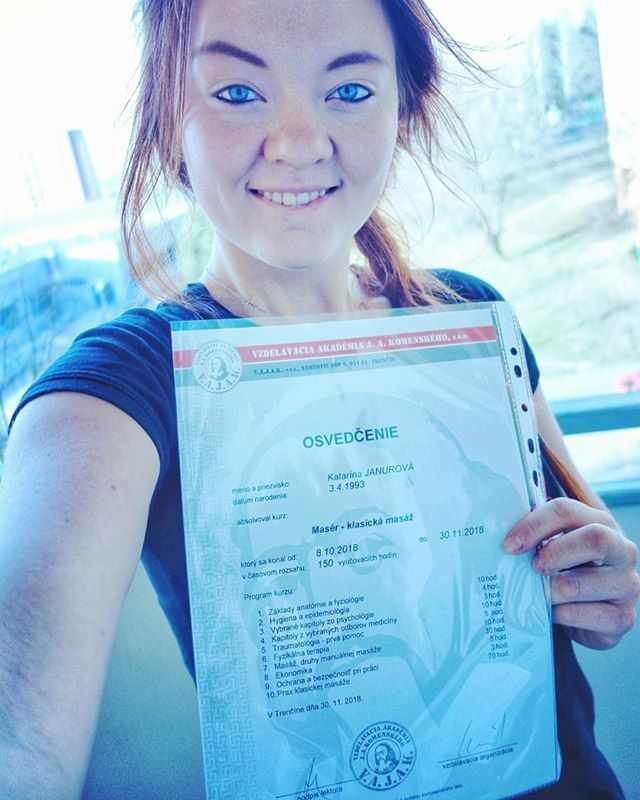 VZDELÁVACIA AKADÉMIA J. A. KOMENSKÉHO, s.r.o.
V.A.J.A.K., s.r.o., NÁMESTIE SNP 9, 911 01 TRENČÍN
VZDELÁVACIA AKADÉMIA
V.A.J.A.K.
OSVEDČENIE
meno a priezvisko: Katarína JANUROVÁ
dátum narodenia: 3.4.1993
absolvoval kurz:
Masér - klasická masáž
ktorý sa konal od: 8.10.2018 do 30.11.2018
v časovom rozsahu: 150 vyučovacích hodín
Program kurzu:
1. Základy anatómie a fyziológie 10 hod
2. Hygiena a epidemiológia 4 hod.
3. Vybrané kapitoly zo psychológie 3 hod.
4. Kapitoly z vybraných odborov medicíny 10 hod.
5. Traumatológia - prvá pomoc 5 hod.
6. Fyzikálna terapia 10 hod.
7. Masáž, druhy manuálnej masáže 30 hod.
8. Ekonomika 5 hod.
9. Ochrana a bezpečnosť pri práci 3 hod.
10. Prax klasickej masáže 70 hod.
V Trenčíne dňa 30. 11. 2018.
VZDELÁVACIA AKADÉMIA
J. A. KOMENSKÉHO
V.A.J.A.K.
podpis lektora
vzdelávacia organizácia